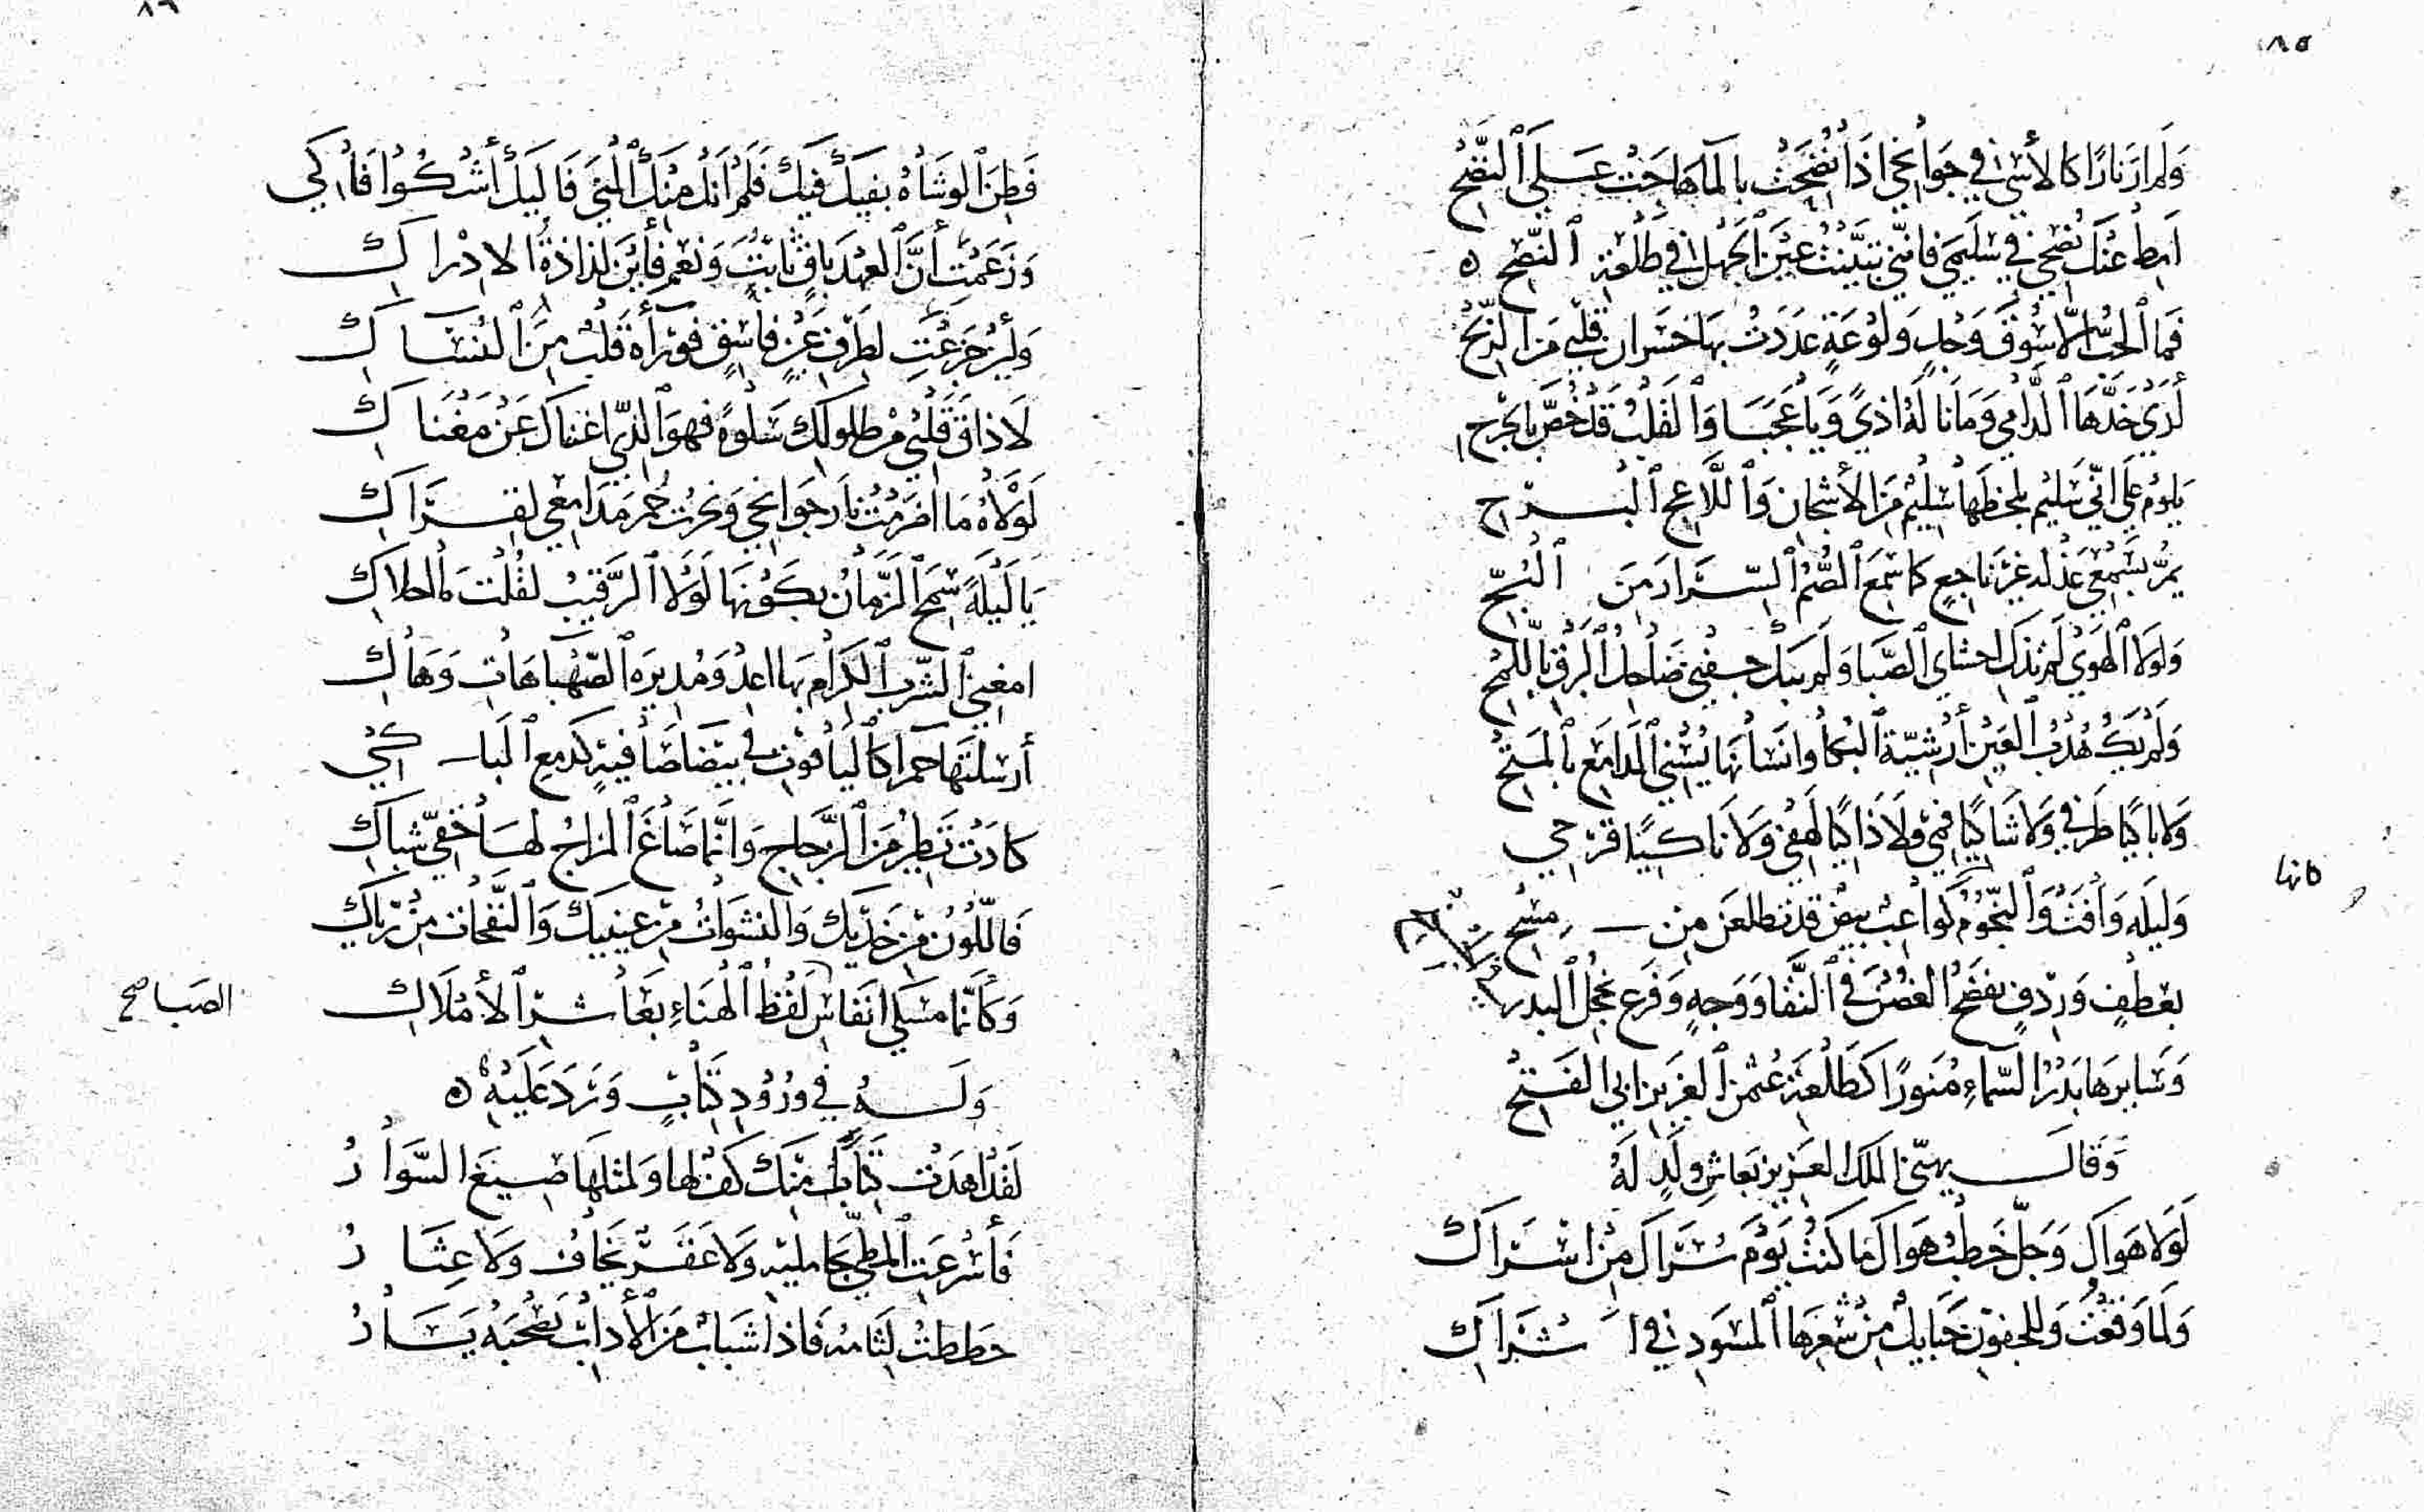 ٨٥
وَلم أرَ نارًا كالأسى في جَوانحي إذَا نُضِحَتْ بالمآ هاجَتْ عَلى النَّضْحِ
أمِطْ عنكَ نُصحي في سُليمى فإنّني تبيَّنتُ عَيْنَ الجَهْل في طَلْعَةِ النّصْحِ ه
فمَا الحُبُّ إلّا سُوقُ وَجْدٍ ولَوْعَةٍ عَدَدْتُ بهَا خسران قلبي مَن الرِّبْح
لَدَى خَدّهَا الدّامي وَمَا نا لهُ أذىً وَيا عَجَبَا وَالقلبُ قَد خُصَّ بالجرْح
يَلومُ عَلَى انّي سَليم بلحظِهَا سَليمٌ مَن الأشجان وَاللّاعِج البَرْحِ
يمرُّ بسَمْعي عَذْله غيرَ ناجعٍ كما سَمعَ الصُّمّ السّرَار من البُحِّ
وَلولا الهَوَى لم تُذْكِ احشاي الصَّبا وَلم يَبْكِ جفني ضَاحِك البَرْق باللّمْح
وَلم يكُ هُدْبُ العَيْن أرْشيَة البُكا وإنسَانهَا يُسْني المدَامِع بالمَتْح
وَلا باكيًا طَرْفي وَلا شَاكيًا فمي ولا ذاكيًا لَهفي وَلا ناكيًا قَرْحي
كانها
وَليلَه وَافَتْ وَالنجُومُ كواعبٌ بيضٌ قد تطلعن من مسْح
بعَطْفٍ وَردْفٍ يفضَحُ الغُصْنَ في النَّقا وَوَجهٍ وَفَرعٍ يخجل البدر
وَسَايرهَا بَدْرُ السّماءِ مُنورًا كطَلْعَةِ عُثمن العَزيز ابي الفَتْح
وَقالَ يهنّئ الملك العَزيز بَعاشِر ولَدٍ لَهُ
لَوْلا هَوَاكِ وَجلّ خَطبُ هَوَاكِ ما كنتُ يَوْمَ سُرَاكِ مِنْ اسْرَاكِ
وَلمَا وَقعْتُ وَللجفون حَبَايلٌ مِنْ شَعرِهَا المسْوَدِ في اشْرَاكِ
٨٦
فَطِنَ الوشَاهُ بفيكِ فيكِ فَلمْ انل منكِ المُنى فَاليكِ أشْكُوا فاكي
وَزَعَمْتِ أنَّ العهْدَ باقٍ ثابتٌ وَنعَم فأيْنَ لذاذةُ الادْراكِ
وَلئِنْ جَزعْتِ لطَرْفِ عَيْنٍ فاسِقٍ فوَرآهُ قَلبٌ مِنَ النُسّاكِ
لَا ذاقَ قَلبي من طلولكِ سَلوةً فهوَ الذي اغناكِ عَنْ مَغْنَاكِ
لَوْلَاهُ مَا اضرمْتُ نارَ جَوانحي وَنحرتُ حُمرَ مَدَامعي لقِرَاكِ
يَا لَيْلَةً سَمَحَ الزّمَانُ بكَوْنهَا لَوْلا الرَّقيبُ لقُلْتُ مَا احلاكِ
أرْسَلتهَا حَمرا كاليَاقوت في بيْضَا صَافيةٍ كدَمعِ البَاكي
كادَتْ تَطِيرُ مَن الزّجاج وَانّما صَاغَ المزاجُ لهَا خَفيّ شباكِ
فاللّوْن مِن خَدّيكِ وَالنشوَاتُ مِن عينيكِ وَالنّفحَات مِنْ رَيّاكِ
وَكأنّما مسكي انفاس لَفظُ الهَناءِ بعَاشِر الأمْلَاكِ
الصَباح صح
وَلَهُ في وُرُوْدِ كتَابٍ وَرَدَ عَلَيْهِ ه
لَقَد اهدَت كتَابكَ منكَ كف لها وَلمثلهَا صِيغَ السّوَارُ
فَأسْرعَتِ المطيّ بحَامليهِ وَلا عَقَرٌ يخَافُ وَلا عِثَارُ
حَططتُ لثامهُ فَاذا شَبابٌ مَن الأدابِ يَصْحَبُهُ يَسَارُ